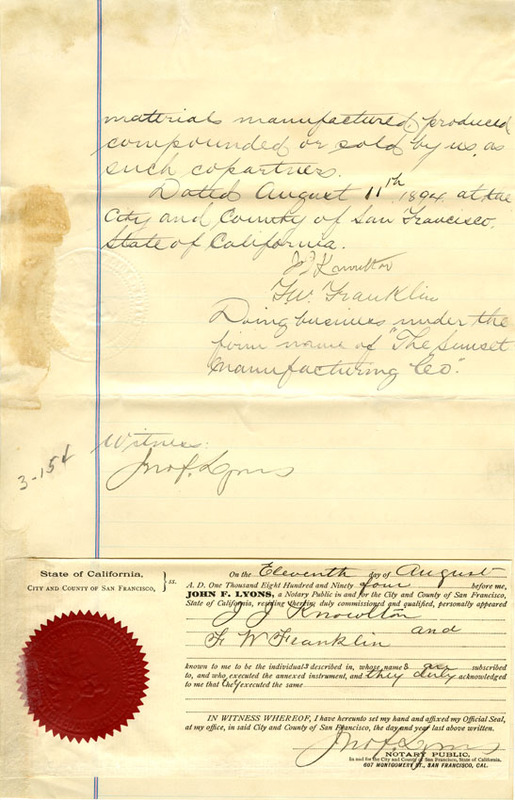 materials manufactured, produced
compounded or sold by us, as
such copartners.
Dated August 11th 1894, at the
City and County of San Francisco,
State of California.
J J Knowlton
F. W. Franklin
Doing business under the
firm name of "The Sunset
Manufacturing Co".
Witness:
Jno. f. Lyons
3-154
State of California,
CITY AND COUNTY OF SAN FRANCISCO,
} ss.
On the Eleventh day of August
A. D. One Thousand Eight Hundred and Ninety four before me,
JOHN F. LYONS, a Notary Public in and for the City and County of San Francisco,
State of California, residing therein, duly commissioned and qualified, personally appeared
J J Knowlton
and
F. W Franklin
known to me to be the individuals described in, whose names are subscribed
to, and who executed the annexed instrument, and they duly acknowledged
to me that they executed the same
IN WITNESS WHEREOF, I have hereunto set my hand and affixed my Official Seal,
at my office, in said City and County of San Francisco, the day and year last above written.
Jno. f. Lyons
NOTARY PUBLIC,
In and for the City and County of San Francisco, State of California.
607 MONTGOMERY ST., SAN FRANCISCO, CAL.